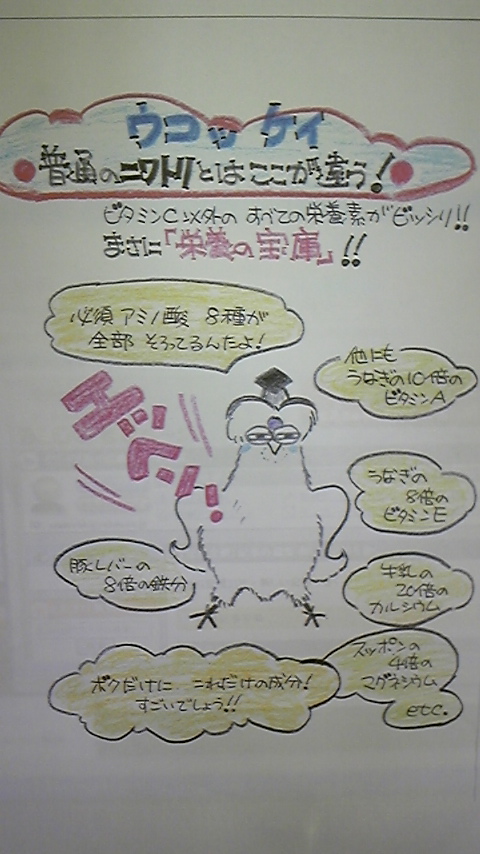 ウコッケイ
普通のニワトリとはここが違う!
ビタミンC以外の すべての栄養素がビッシリ!!
まさに「栄養の宝庫」!!
必須アミノ酸 8種が
全部 そろってるんだよ!
他にも
うなぎの10倍の
ビタミンA
うなぎの
8倍の
ビタミンE
豚レバーの
8倍の鉄分
牛乳の
20倍の
カルシウム
スッポンの
4倍の
マグネシウム
etc.
ボクだけに これだけの成分!
すごいでしょう!!